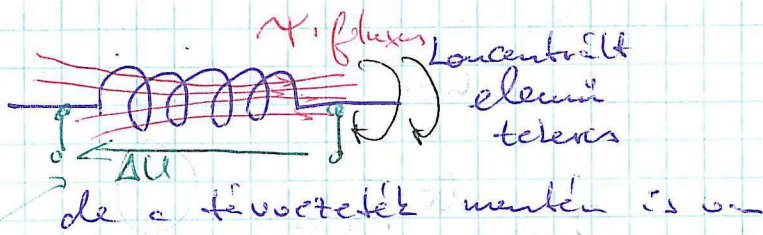 Ψ: fluxus
koncentrált
elemű
tekercs
ΔU
de a távvezeték mentén is van